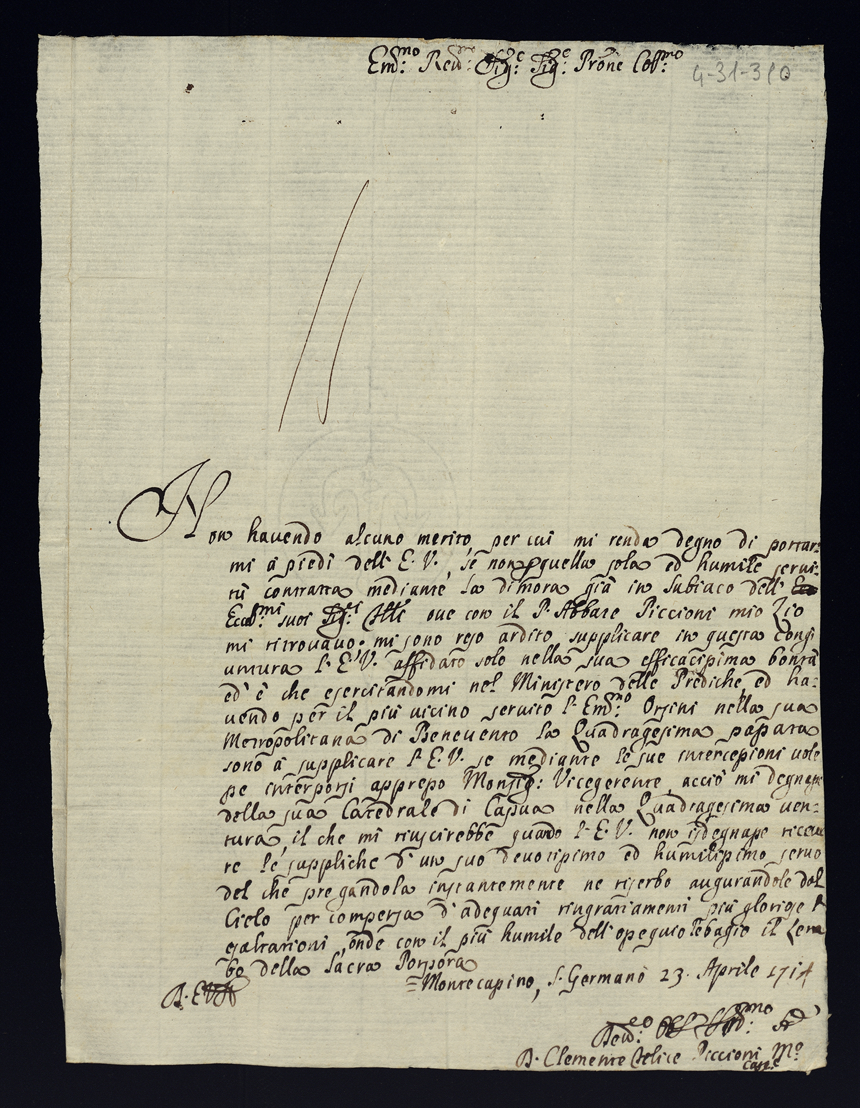 Em.mo Rev.mo Sig.e Sig.e Prōne Col.mo
4-31-310
Non havendo alcuno merito, per cui mi renda degno di portar-
mi à piedi dell'E.V., se non quella sola ed humile servi-
tù contratta mediante la dimora già in Subiaco dell'
Ecc.mi suoi Sig.ri ove con il P. Abbate Piccioni mio Zio
mi ritrovavo; mi sono reso ardito supplicare in questa congi
untura l'E.V. affidato solo nella sua efficacissima bontà
ed è che esercitandomi nel Ministero delle Prediche ed ha-
vendo per il più vicino servito l'Em.mo Orsini nella sua
Metropolitana di Benevento la Quadragesima passata
sono à supplicare l'E.V. se mediante le sue intercessioni voles
se interporsi appresso Monsig: Vicegerente, acciò mi degnasse
della sua Catedrale di Capua nella Quadragesima ven-
tura, il che mi riuscirebbe quando l'E.V. non isdegnasse riceve
re le suppliche d'un suo devotissimo ed humilissimo servo
del che pregandola instantemente ne riserbo augurandole dal
Cielo per compensa d'adequati ringratiamenti più gloriose l'
esaltationi, onde con il più humile dell'ossequio bagio il Lem
bo della Sacra Porpora
Montecasino, S. Germano 23. Aprile 1714
D. E.V.
D. Clemente Felice Piccioni M.o
Cass.e